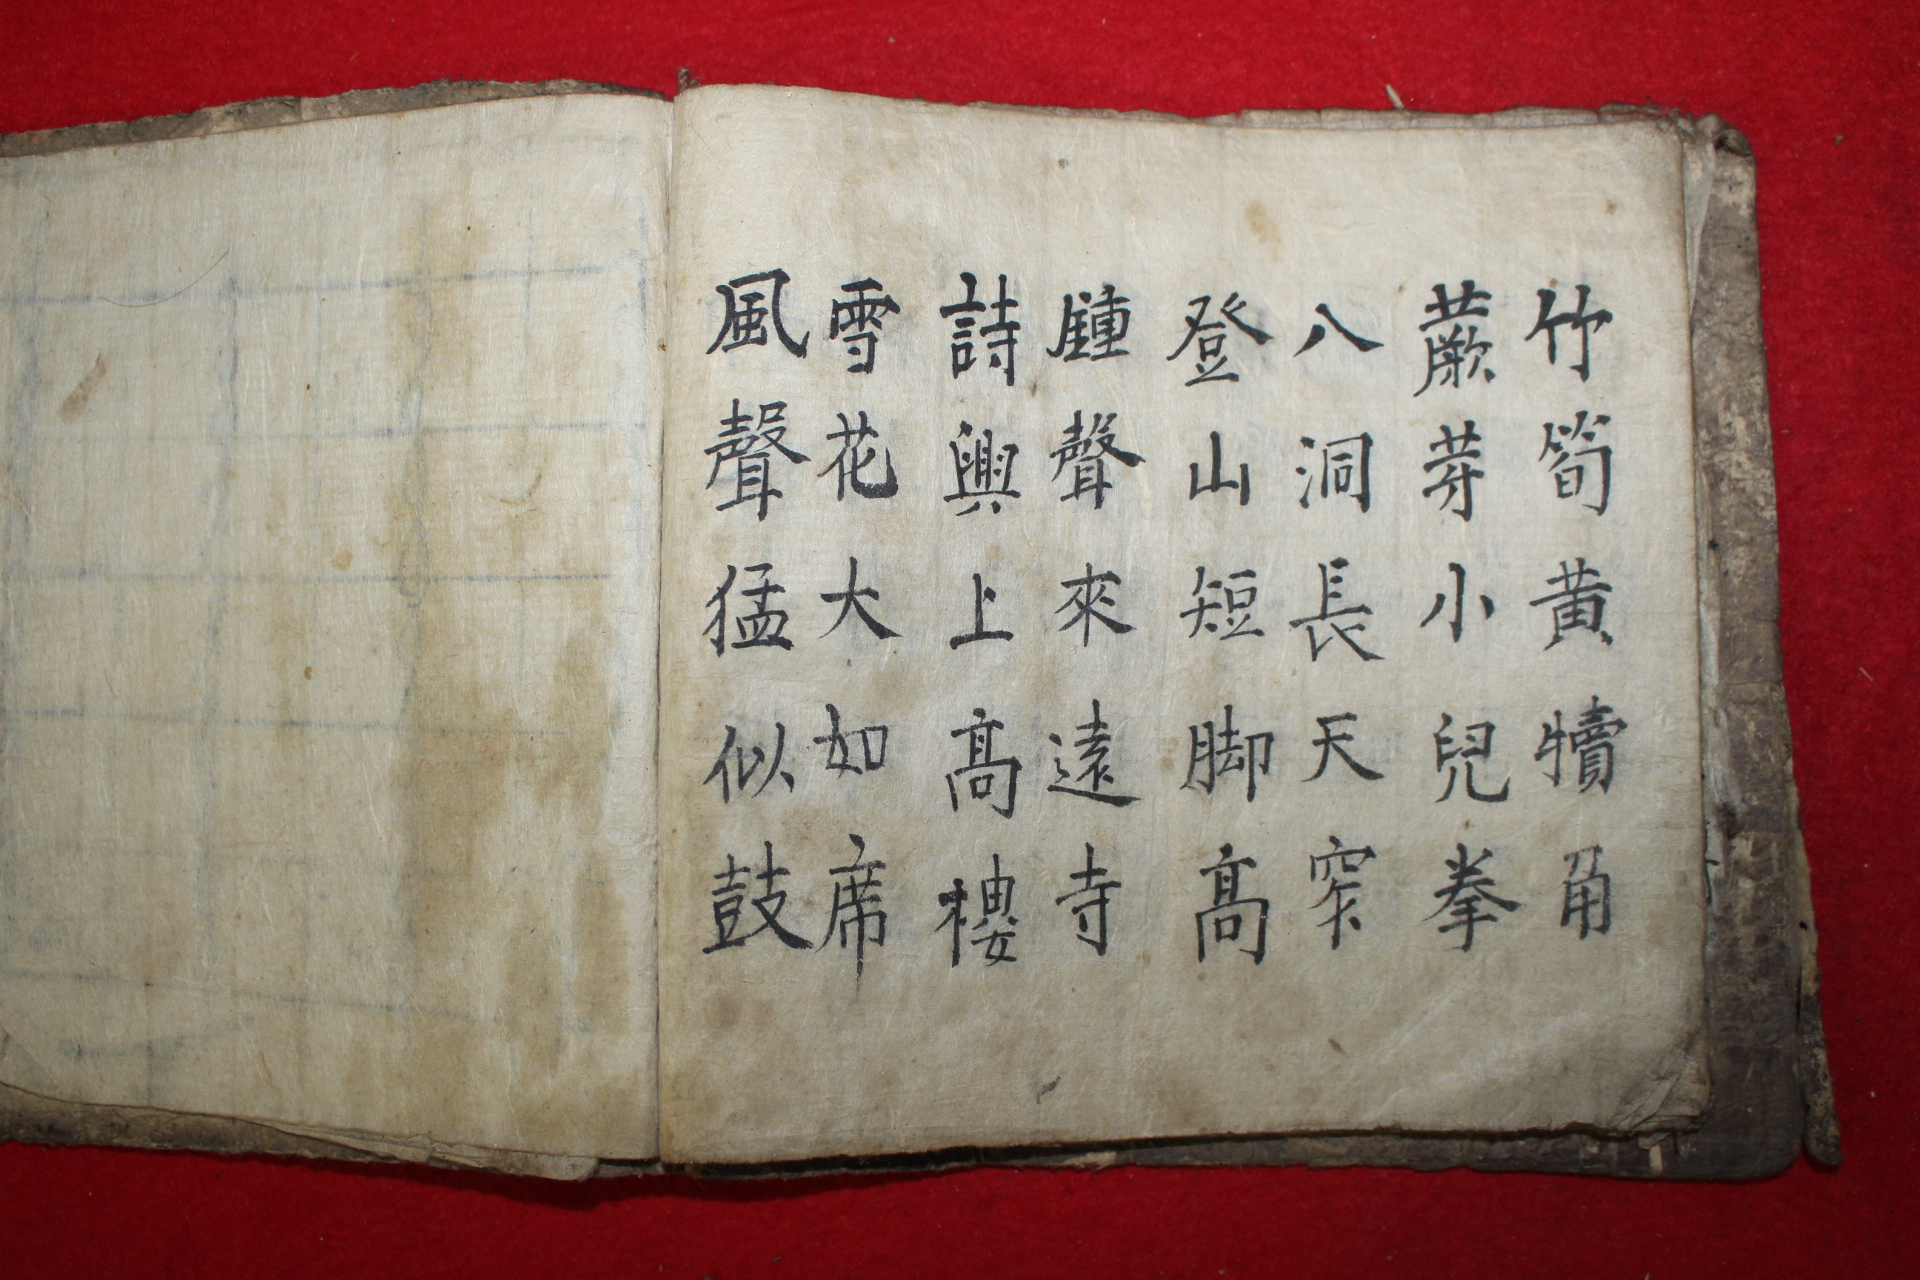 竹筍黃犢角
蕨芽小兒拳
八洞長天窄
登山短脚高
鍾聲來遠寺
詩興上高樓
雪花大如席
風聲猛似鼓